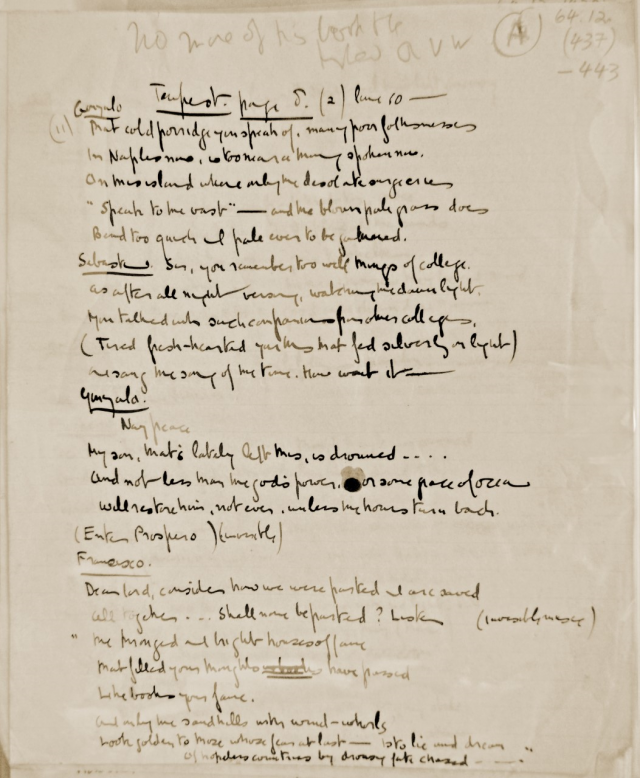 No more of his book the
64.12.
(A)
(437)
- 443
Tempest. page 8. (2) line 10 —
Gonzalo
(11) That cold porridge you speak of, many poor folk messes
In Naples now, is too near a thing spoken now.
On this island where only the desolate surge cries
"Speak to the vast" — and the blown pale grass does
Bend too quick and pale ever to be gathered.
Sebastian. Sir, you remember too well things of college.
As after all night versing, watching the dawn light.
You talked with such companions from other colleges,
(Tired fresh-hearted youths that fed silverly on light)
and sang the song of the time. How went it —
Gonzalo.
Nay peace
My son, that's lately left this, is drowned ....
And not less than the god's power, or some grace of ocean
Will restore him, not ever, unless the hours turn back.
(Enter Prospero) (invisible)
Francisco.
Dear lord, consider how we were parted and are saved
all together ... Shall none be parted? Listen (invisible music)
"The thronged and bright houses of fame
That filled your thoughts have passed
Like books your fame.
And only the sandhills with wind-whorls
Look golden to those whose fear at last — is to lie and dream
Of hopeless countries by drowsy fate chased — . . . "